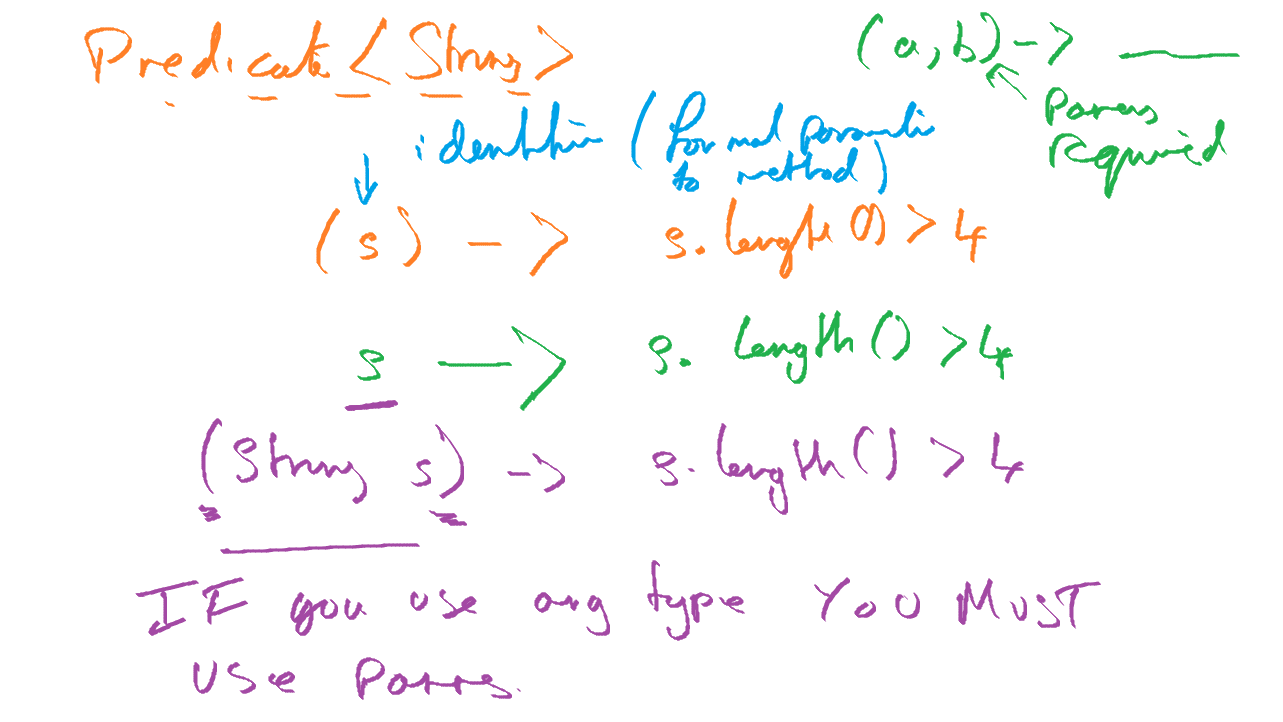 Predicate<String>
(a,b) -> ____
Parens
required
identifier (formal parameter
to method)
(s) -> s.length()>4
s -> s.length()>4
(String s) -> s.length()>4
IF you use arg type YOU MUST
USe Parens.